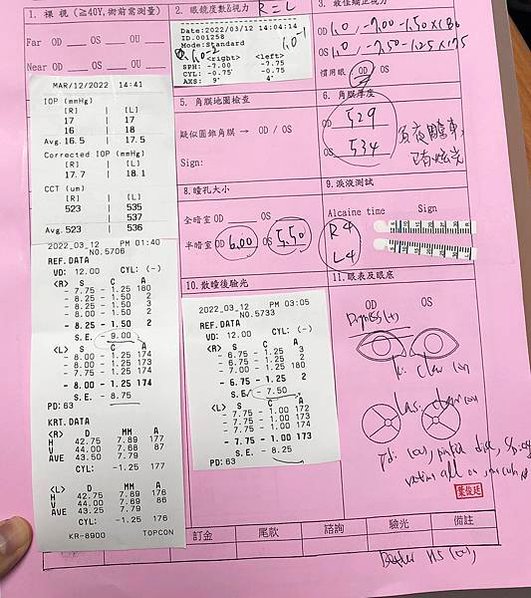 1. 裸 視 (≧40Y,術前需測量)
Far OD ___ OS ___ OU
Near OD ___ OS ___ OU
MAR/12/2022 14:41
IOP (mmHg)
[R] [L]
17 17
16 18
Avg. 16.5 17.5
Corrected IOP (mmHg)
[R] [L]
17.7 18.1
CCT (um)
[R] [L]
523 535
537
537
Avg. 523 536
2022_03_12 PM 01:40
NO.5706
REF.DATA
VD: 12.00 CYL: (-)
<R> S C A
- 7.75 - 1.25 180
- 8.25 - 1.50 2
- 8.25 - 1.50 3
- 8.25 - 1.50 2
- 8.25 - 1.50 2
S.E. - 9.00
<L> S C A
- 8.00 - 1.25 174
- 8.00 - 1.25 173
- 7.75 - 1.25 174
- 8.00 - 1.25 174
S.E. - 8.75
PD: 63
KRT.DATA
<R> D MM A
H 42.75 7.89 177
V 44.00 7.68 87
AVE 43.50 7.79
CYL: -1.25 177
<L> D MM A
H 42.75 7.89 176
V 44.00 7.69 86
AVE 43.25 7.79
CYL: -1.25 176
KR-8900 TOPCON
2. 眼鏡度數&視力 R=L
Date:2022/03/12 14:04:14
ID.001258
Mode:Standard
1.0-1
1.0-2
<right> <left>
SPH: -7.00 -7.75
CYL: -0.75 -0.75
AXS: 9° 4°
3. 最佳矯正視力
OD 1.0 , -7.00 -1.50 x 180
OS 1.0 , -7.50 -1.25 x 175
慣用眼 OD / OS
5. 角膜地圖檢查
疑似圓錐角膜 → OD / OS
Sign:
6. 角膜厚度
OD 529
OS 534
8. 瞳孔大小
全暗室 OD ___ OS ___
半暗室 OD 6.00 OS 5.50
9. 淚液測試
Alcaine time Sign
R 4
L 4
10. 散瞳後驗光
2022_03_12 PM 03:05
NO.5733
REF.DATA
VD: 12.00 CYL: (-)
<R> S C A
- 6.75 - 1.25 3
- 6.75 - 1.25 2
- 7.00 - 1.00 180
- 6.75 - 1.25 2
S.E. - 7.50
<L> S C A
- 7.75 - 1.00 172
- 7.75 - 1.00 173
- 7.75 - 1.00 174
- 7.75 - 1.00 173
S.E. - 8.25
PD: 63
11. 眼表及眼底
OD OS
訂金 尾款 諮詢 驗光 備註